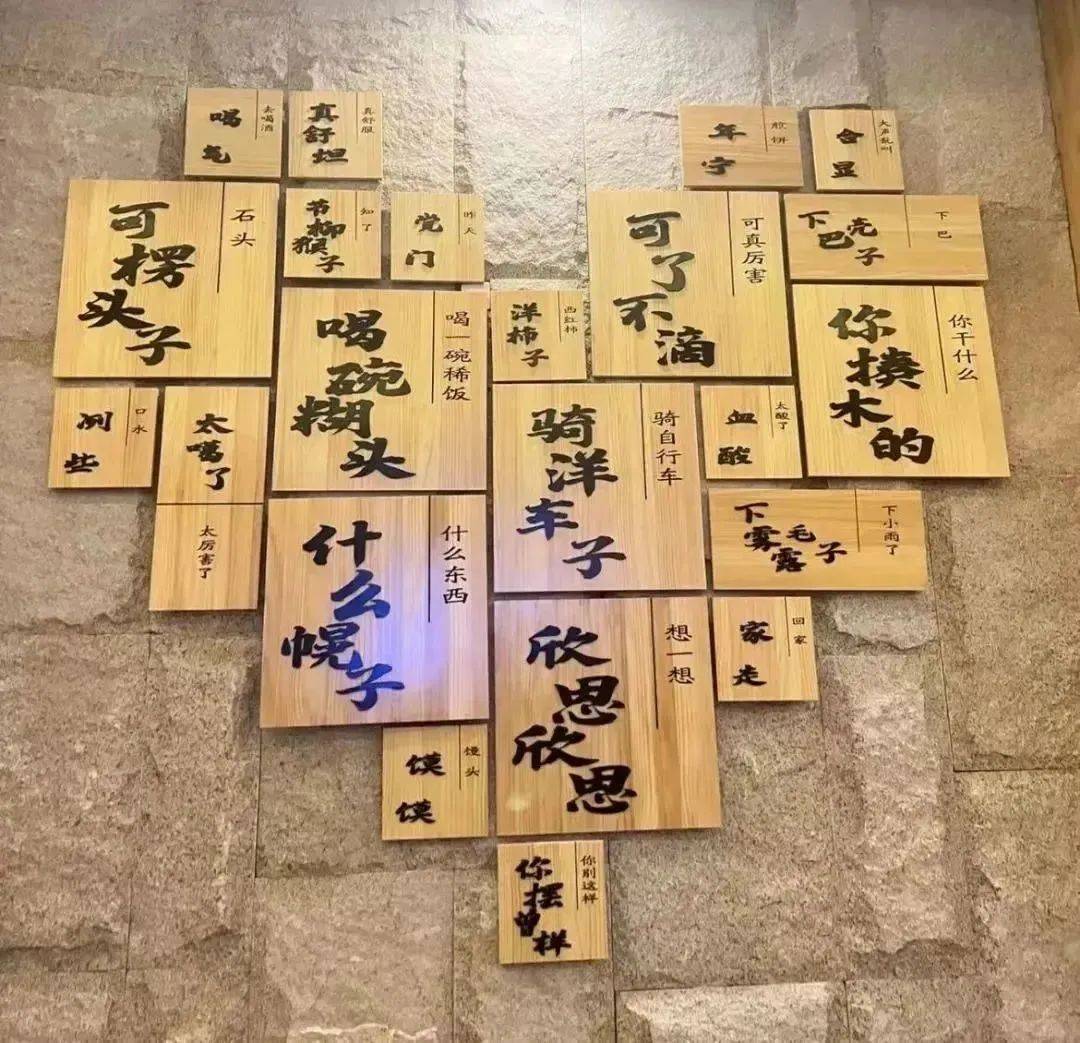 喝气
去喝酒
真舒坦
真舒服
年宁
煎饼
含显
大声乱叫
可楞头子
石头
节柳猴子
知了
党门
昨天
可了不滴
可真厉害
下巴壳子
下巴
喝碗糊头
喝一碗稀饭
洋柿子
西红柿
你揍木的
你干什么
冽些
口水
太噶了
太厉害了
骑洋车子
骑自行车
血酸
太酸了
什么幌子
什么东西
下雾毛露子
下小雨了
欣思欣思
想一想
家走
回家
馍馍
馒头
你摆曾样
你别这样